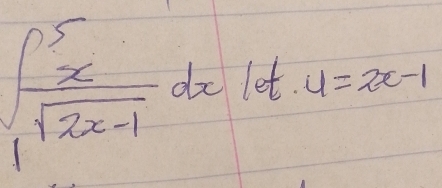 ∫₁⁵ x/√(2x-1) dx let. u = 2x-1